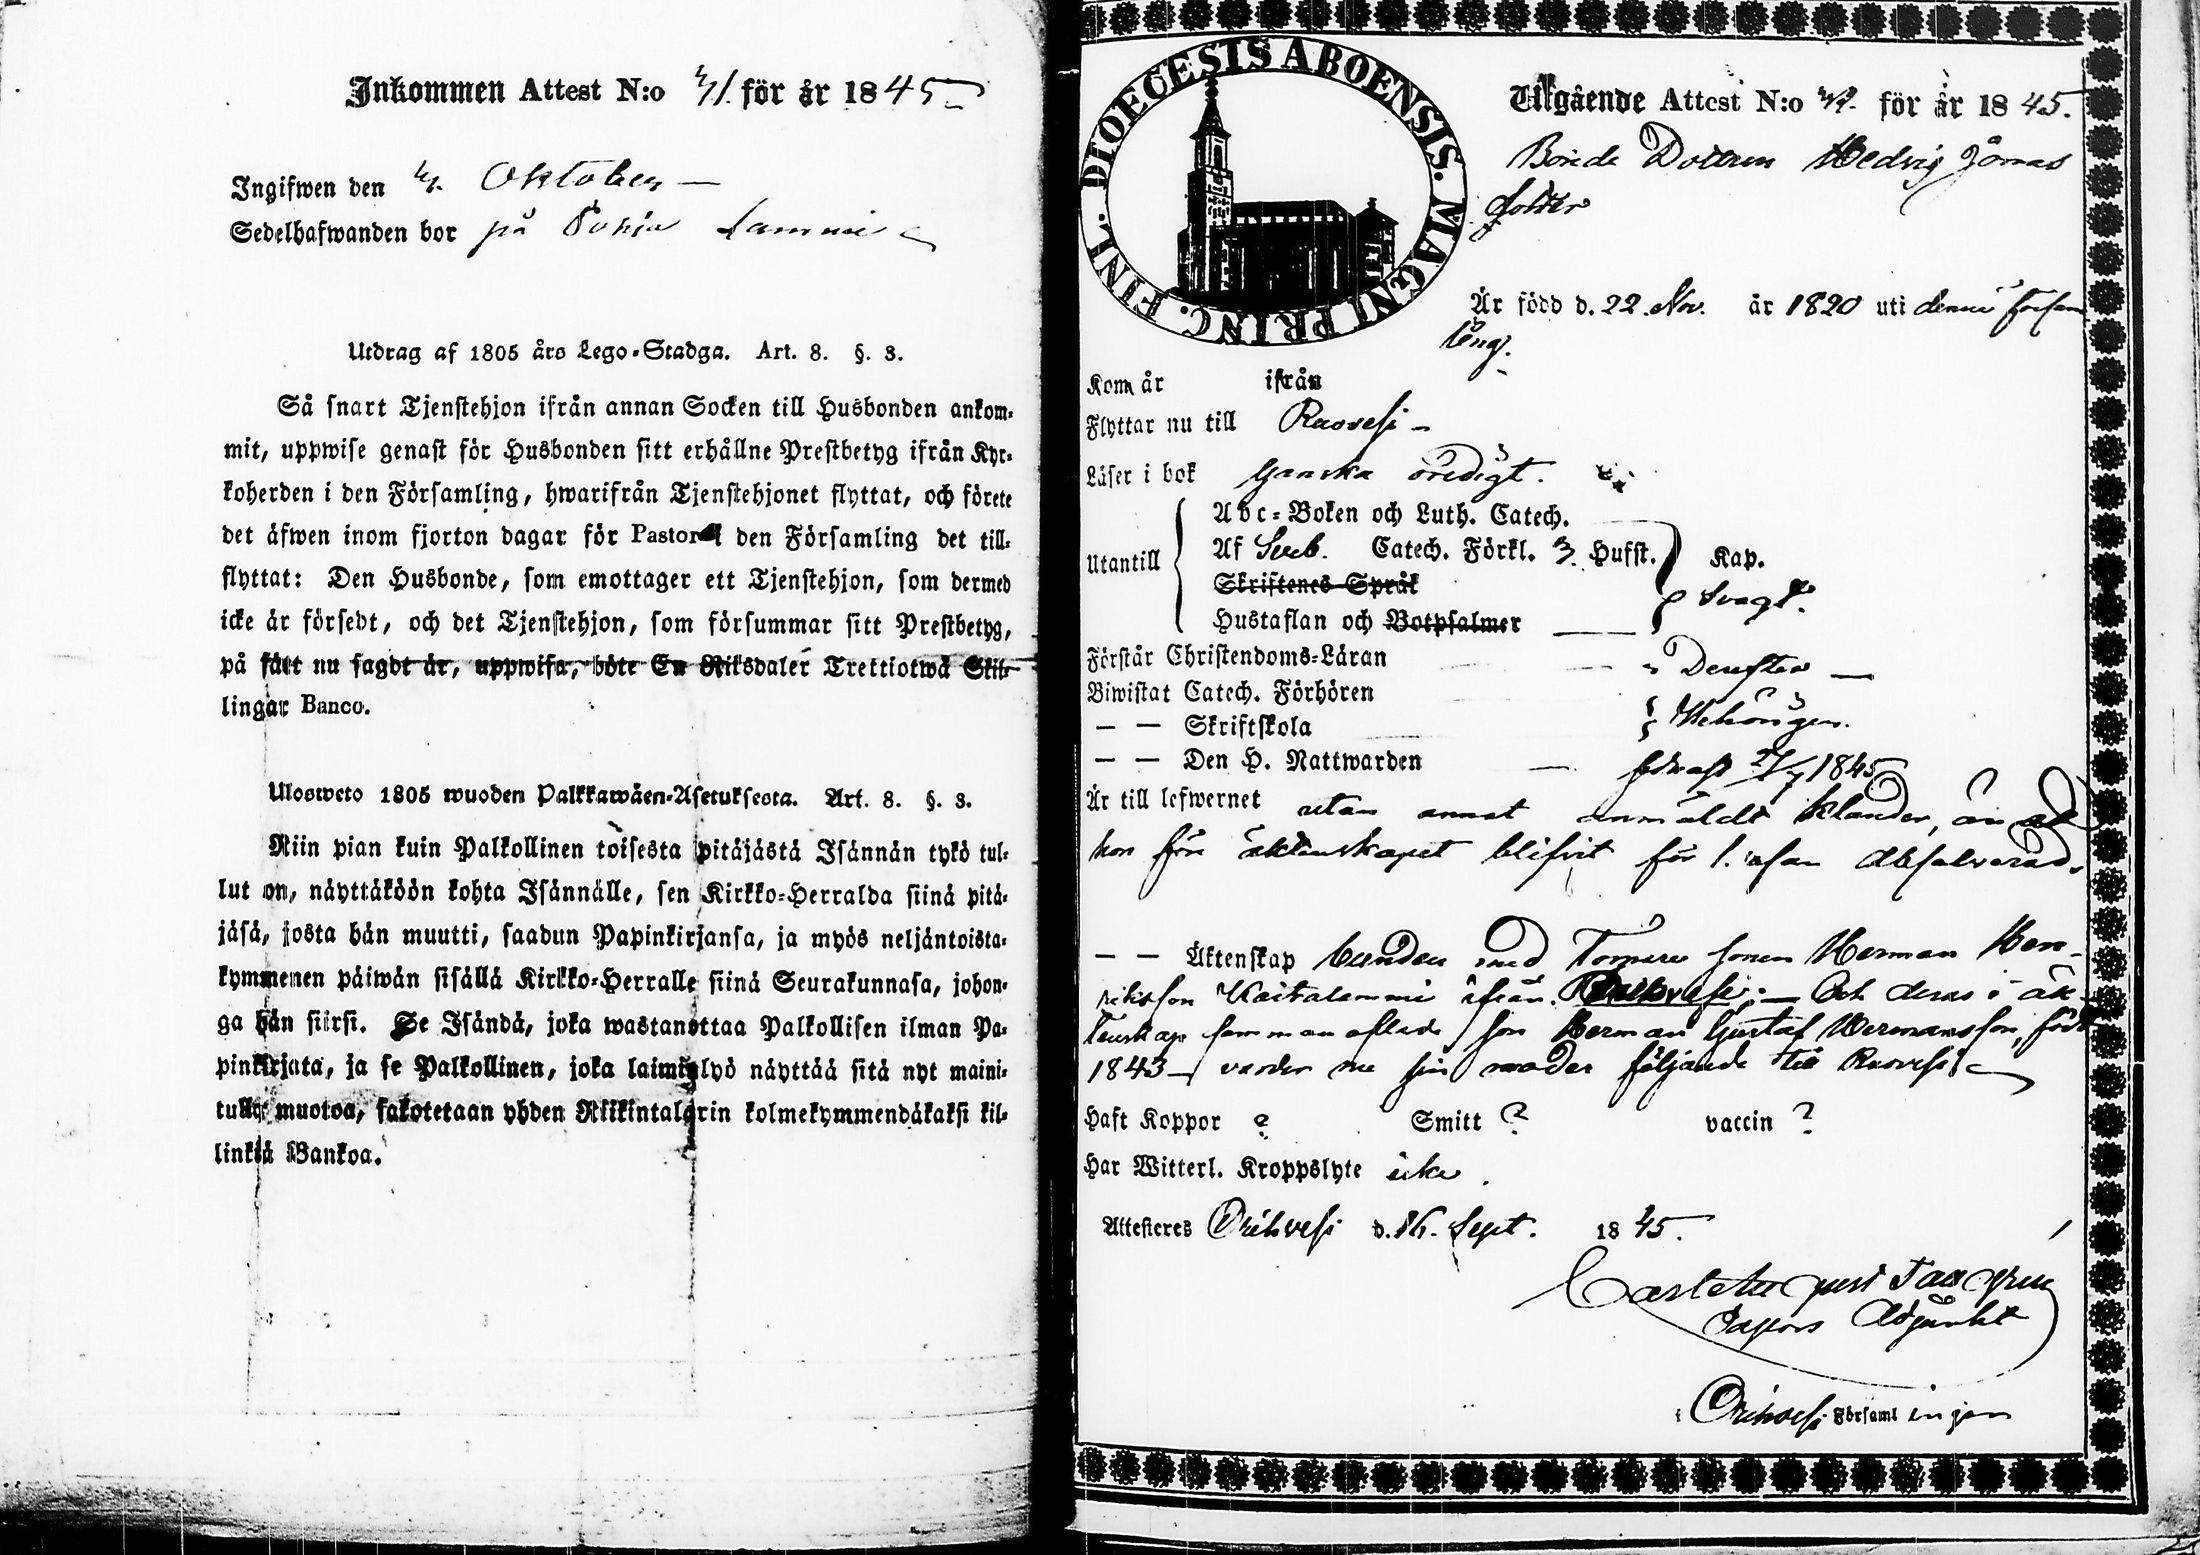 Inkommen Attest N:o 41. för år 1845
Ingifwen den 4. Oktober
Sedelhafwanden bor på Pohja Lammi
Utdrag af 1805 års Lego-Stadga. Art. 8. §. 3.
Så snart Tjenstehjon ifrån annan Socken till Husbonden ankom-
mit, uppwise genast för Husbonden sitt erhållne Prestbetyg ifrån Kyr-
koherden i den Församling, hwarifrån Tjenstehjonet flyttat, och förete
det äfwen inom fjorton dagar för Pastor i den Församling det till-
flyttat: Den Husbonde, som emottager ett Tjenstehjon, som dermed
icke är försedt, och det Tjenstehjon, som försummar sitt Prestbetyg,
på sätt nu sagdt är, uppwisa, böte En Riksdaler Trettiotwå Skil-
lingar Banco.
Ulosweto 1805 wuoden Palkkawäen-Asetuksesta. Art. 8. §. 3.
Niin pian kuin Palkollinen toisesta pitäjästä Isännän tykö tul-
lut on, näyttäköön kohta Isännälle, sen Kirkko-Herralda siinä pitä-
jäsä, josta hän muutti, saadun Papinkirjansa, ja myös neljäntoista-
kymmenen päiwän sisällä Kirkko-Herralle siinä Seurakunnasa, johon-
ga hän siirsi. Se Isändä, joka wastanottaa Palkollisen ilman Pa-
pinkirjata, ja se Palkollinen, joka laiminlyö näyttää sitä nyt maini-
tulla muotoa, sakotetaan yhden Riikintalarin kolmekymmendäkaksi kil-
linkiä Bankoa.
DIOECESIS ABOENSIS. MAGNI PRINC. FINL.
Utgående Attest N:o för år 1845.
Bonde Dottren Hedvig Jonas
dotter
Är född d. 22. Nov. år 1820 uti denne försam
ling.
Kom år ifrån
Flyttar nu till Ruovesi
Läser i bok ganska oredigt.
Utantill
Abc-Boken och Luth. Catech.
Af Sveb. Catech. Förkl. 3. Hufst. Kap.
Skriftenes Språk
Hustaflan och Botpsalmer
svagt.
Förstår Christendoms-Läran Derefter
Biwistat Catech. Förhören
— — Skriftskola Wehörigen.
— — Den H. Nattwarden sednast 27/7 1845
Är till lefwernet utan annat anmäldt klander, än att
hon före äktenskapet blifvit för l. absolverad.
— — Äktenskap bunden med Torpare sonen Herman Hen-
riksson Kaitalammi ifrån Ruovesi; — Och deras i äk
tenskap sammanaflade son Herman Gustaf Hermansson, född
1843 — varder nu sin moder följande till Ruovesi
Haft Koppor ? Smitt ? vaccin ?
Har Witterl. Kroppslyte icke.
Attesteres Orihvesi d. 16. Sept. 1845.
Pastors Adjunkt
i Orihvesi Församlingen